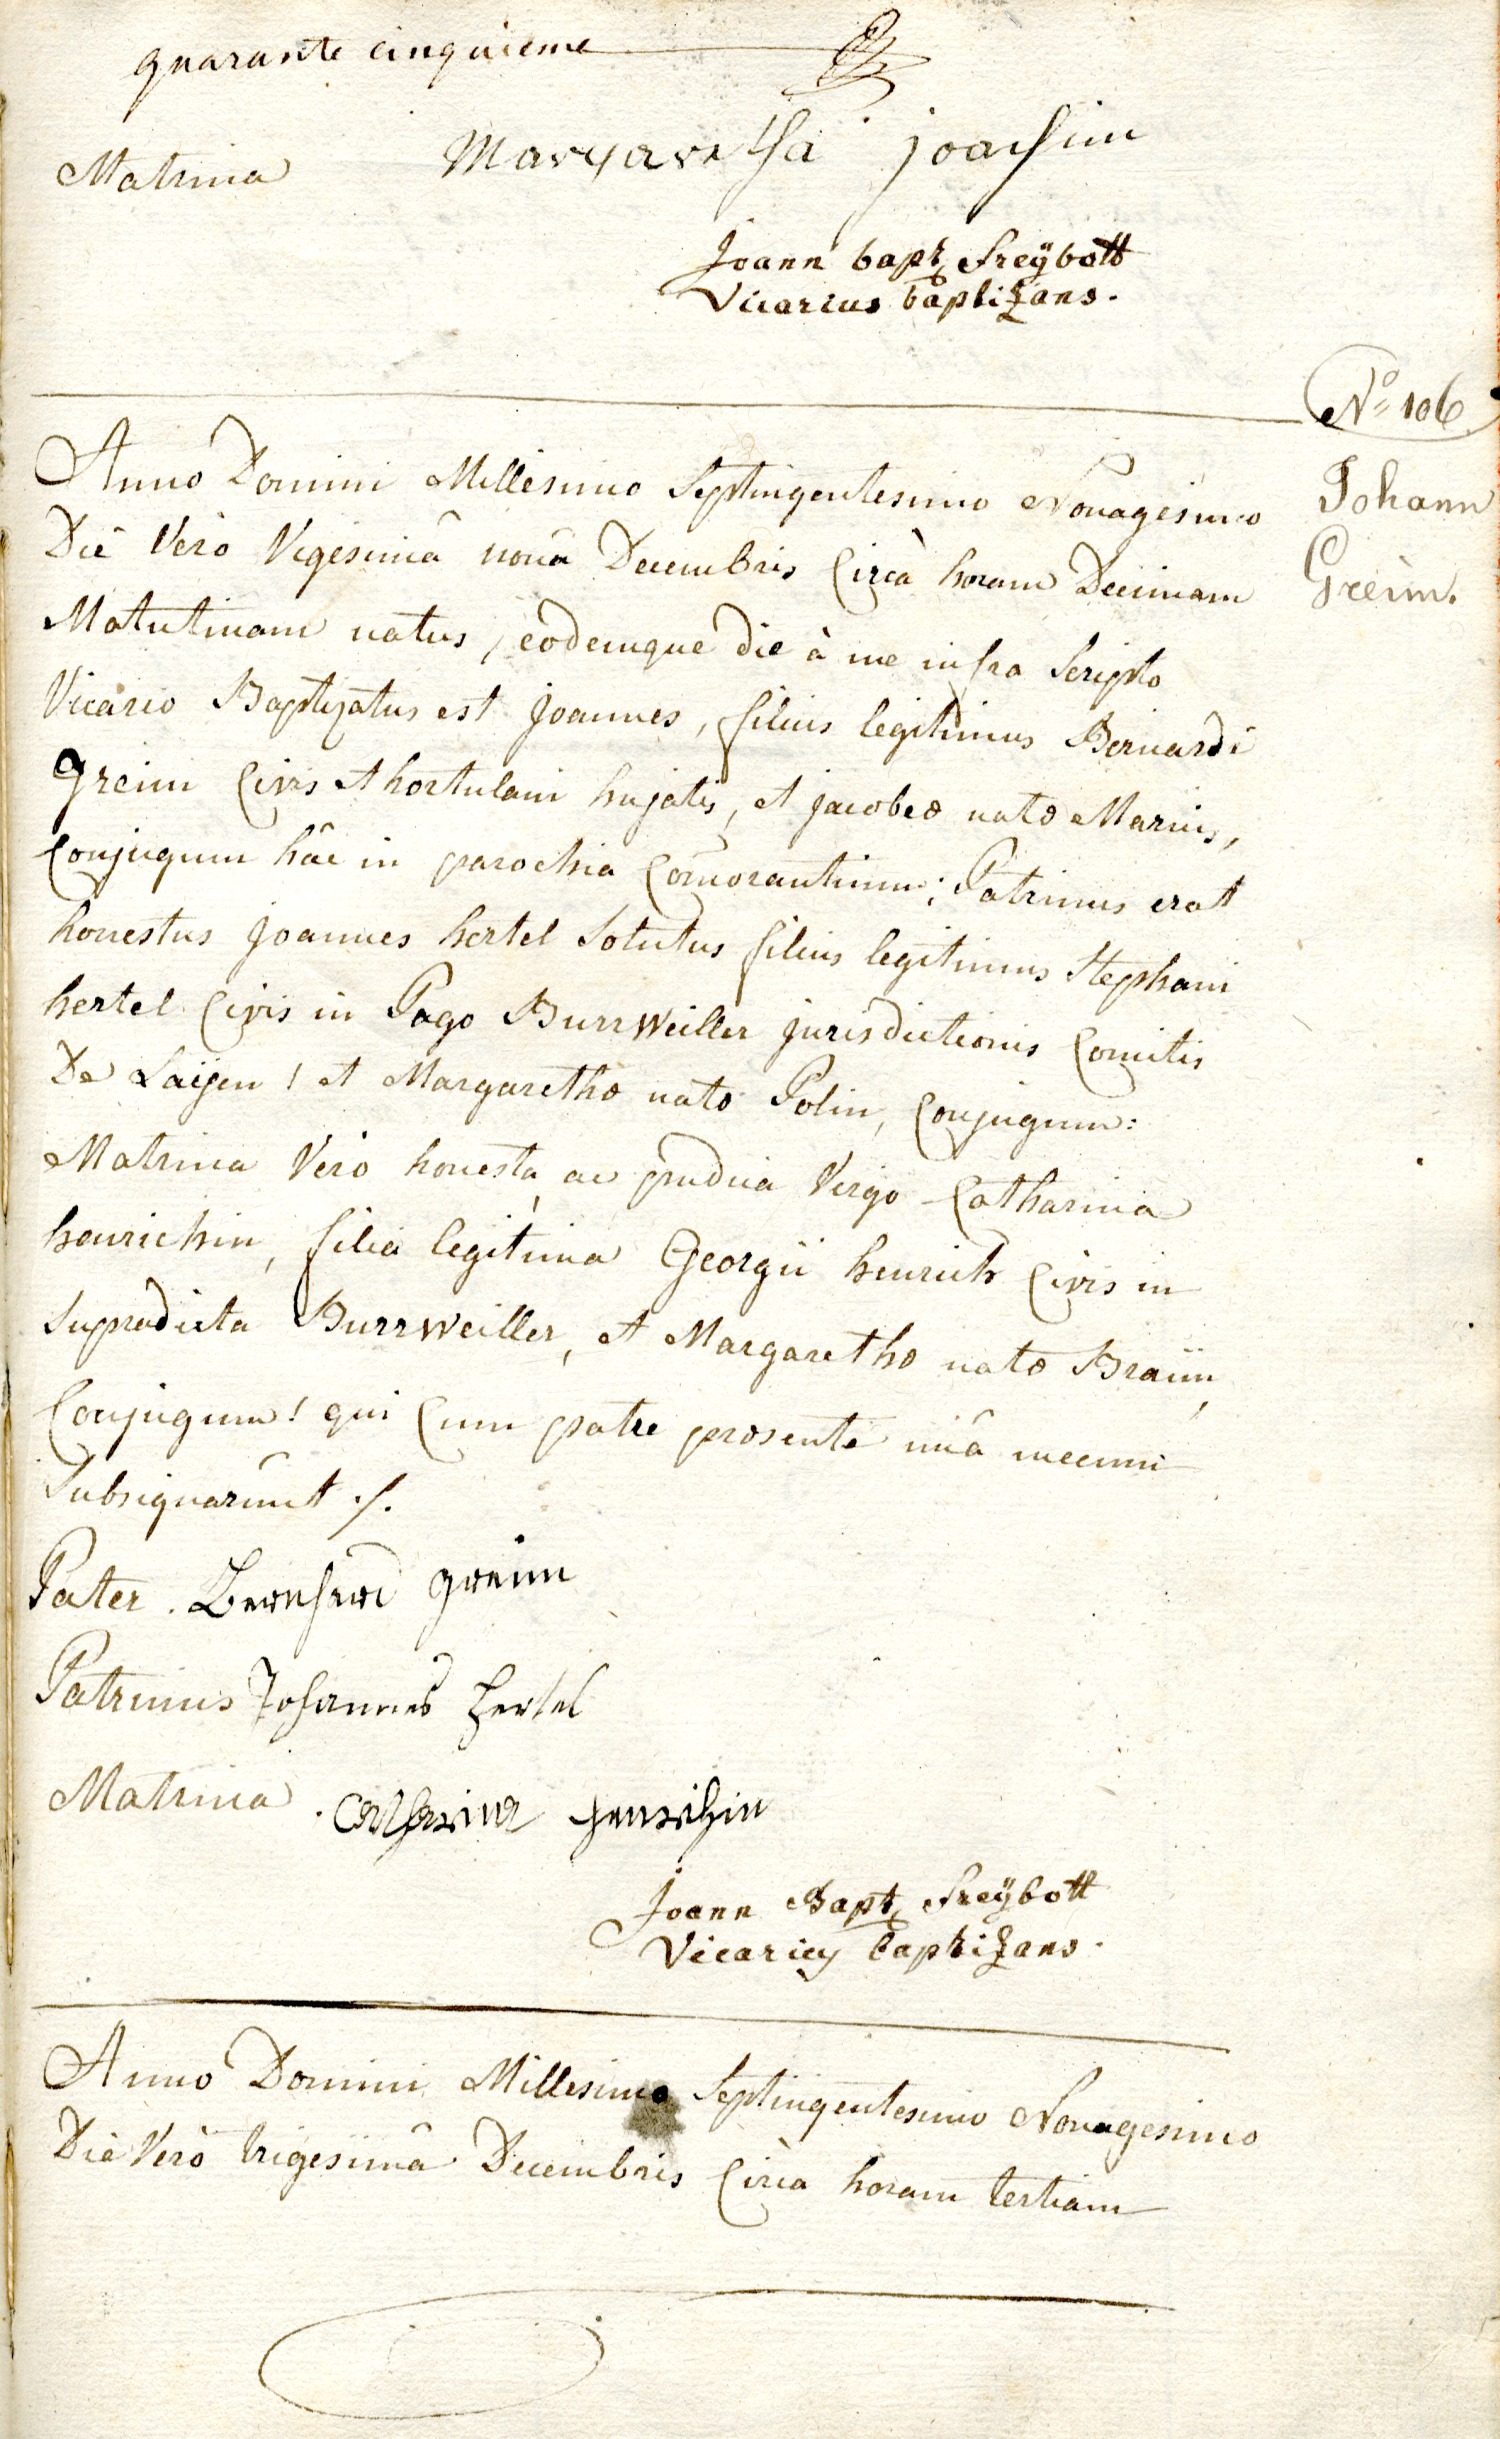 quarante cinquieme
Matrina Margaretha joachim
Joann bapt freÿbott
Vicarius baptizans.
No 106
Johann
Greim.
Anno Domini Millesimo Septingentesimo Nonagesimo
Die Verò Vigesimâ nonâ Decembris Circà horam Decimam
Matutinam natus, eodemque die à me infra Scripto
Vicario Baptizatus est Joannes, filius legitimus Bernardi
Greim Civis et hortulani hujatis, et jacobeæ natæ Marius,
Conjugum hâc in parochia Com̄orantium; Patrinus erat
honestus Joannes hertel Solutus filius legitimus Stephani
hertel Civis in Pago BurrWeiller jurisdictionis Comitis
De Laÿen! et Margarethæ natæ Polin, Conjugum:
Matrina Verò honesta ac pudica Virgo Catharina
henrichin, filia legitima Georgii henrich Civis in
Supradicta BurrWeiller, et Margarethæ natæ Braün,
Conjugum! qui Cum patre præsente unâ mecum
Subsignarunt ./.
Pater. Bernhard greim
Patrinus Johannes Hertel
Matrina. Catharina Henrichin
Joann Bapt freÿbott
Vicarius baptizans.
Anno Domini Millesimo Septingentesimo Nonagesimo
Die Verò trigesimâ Decembris Circa horam tertiam